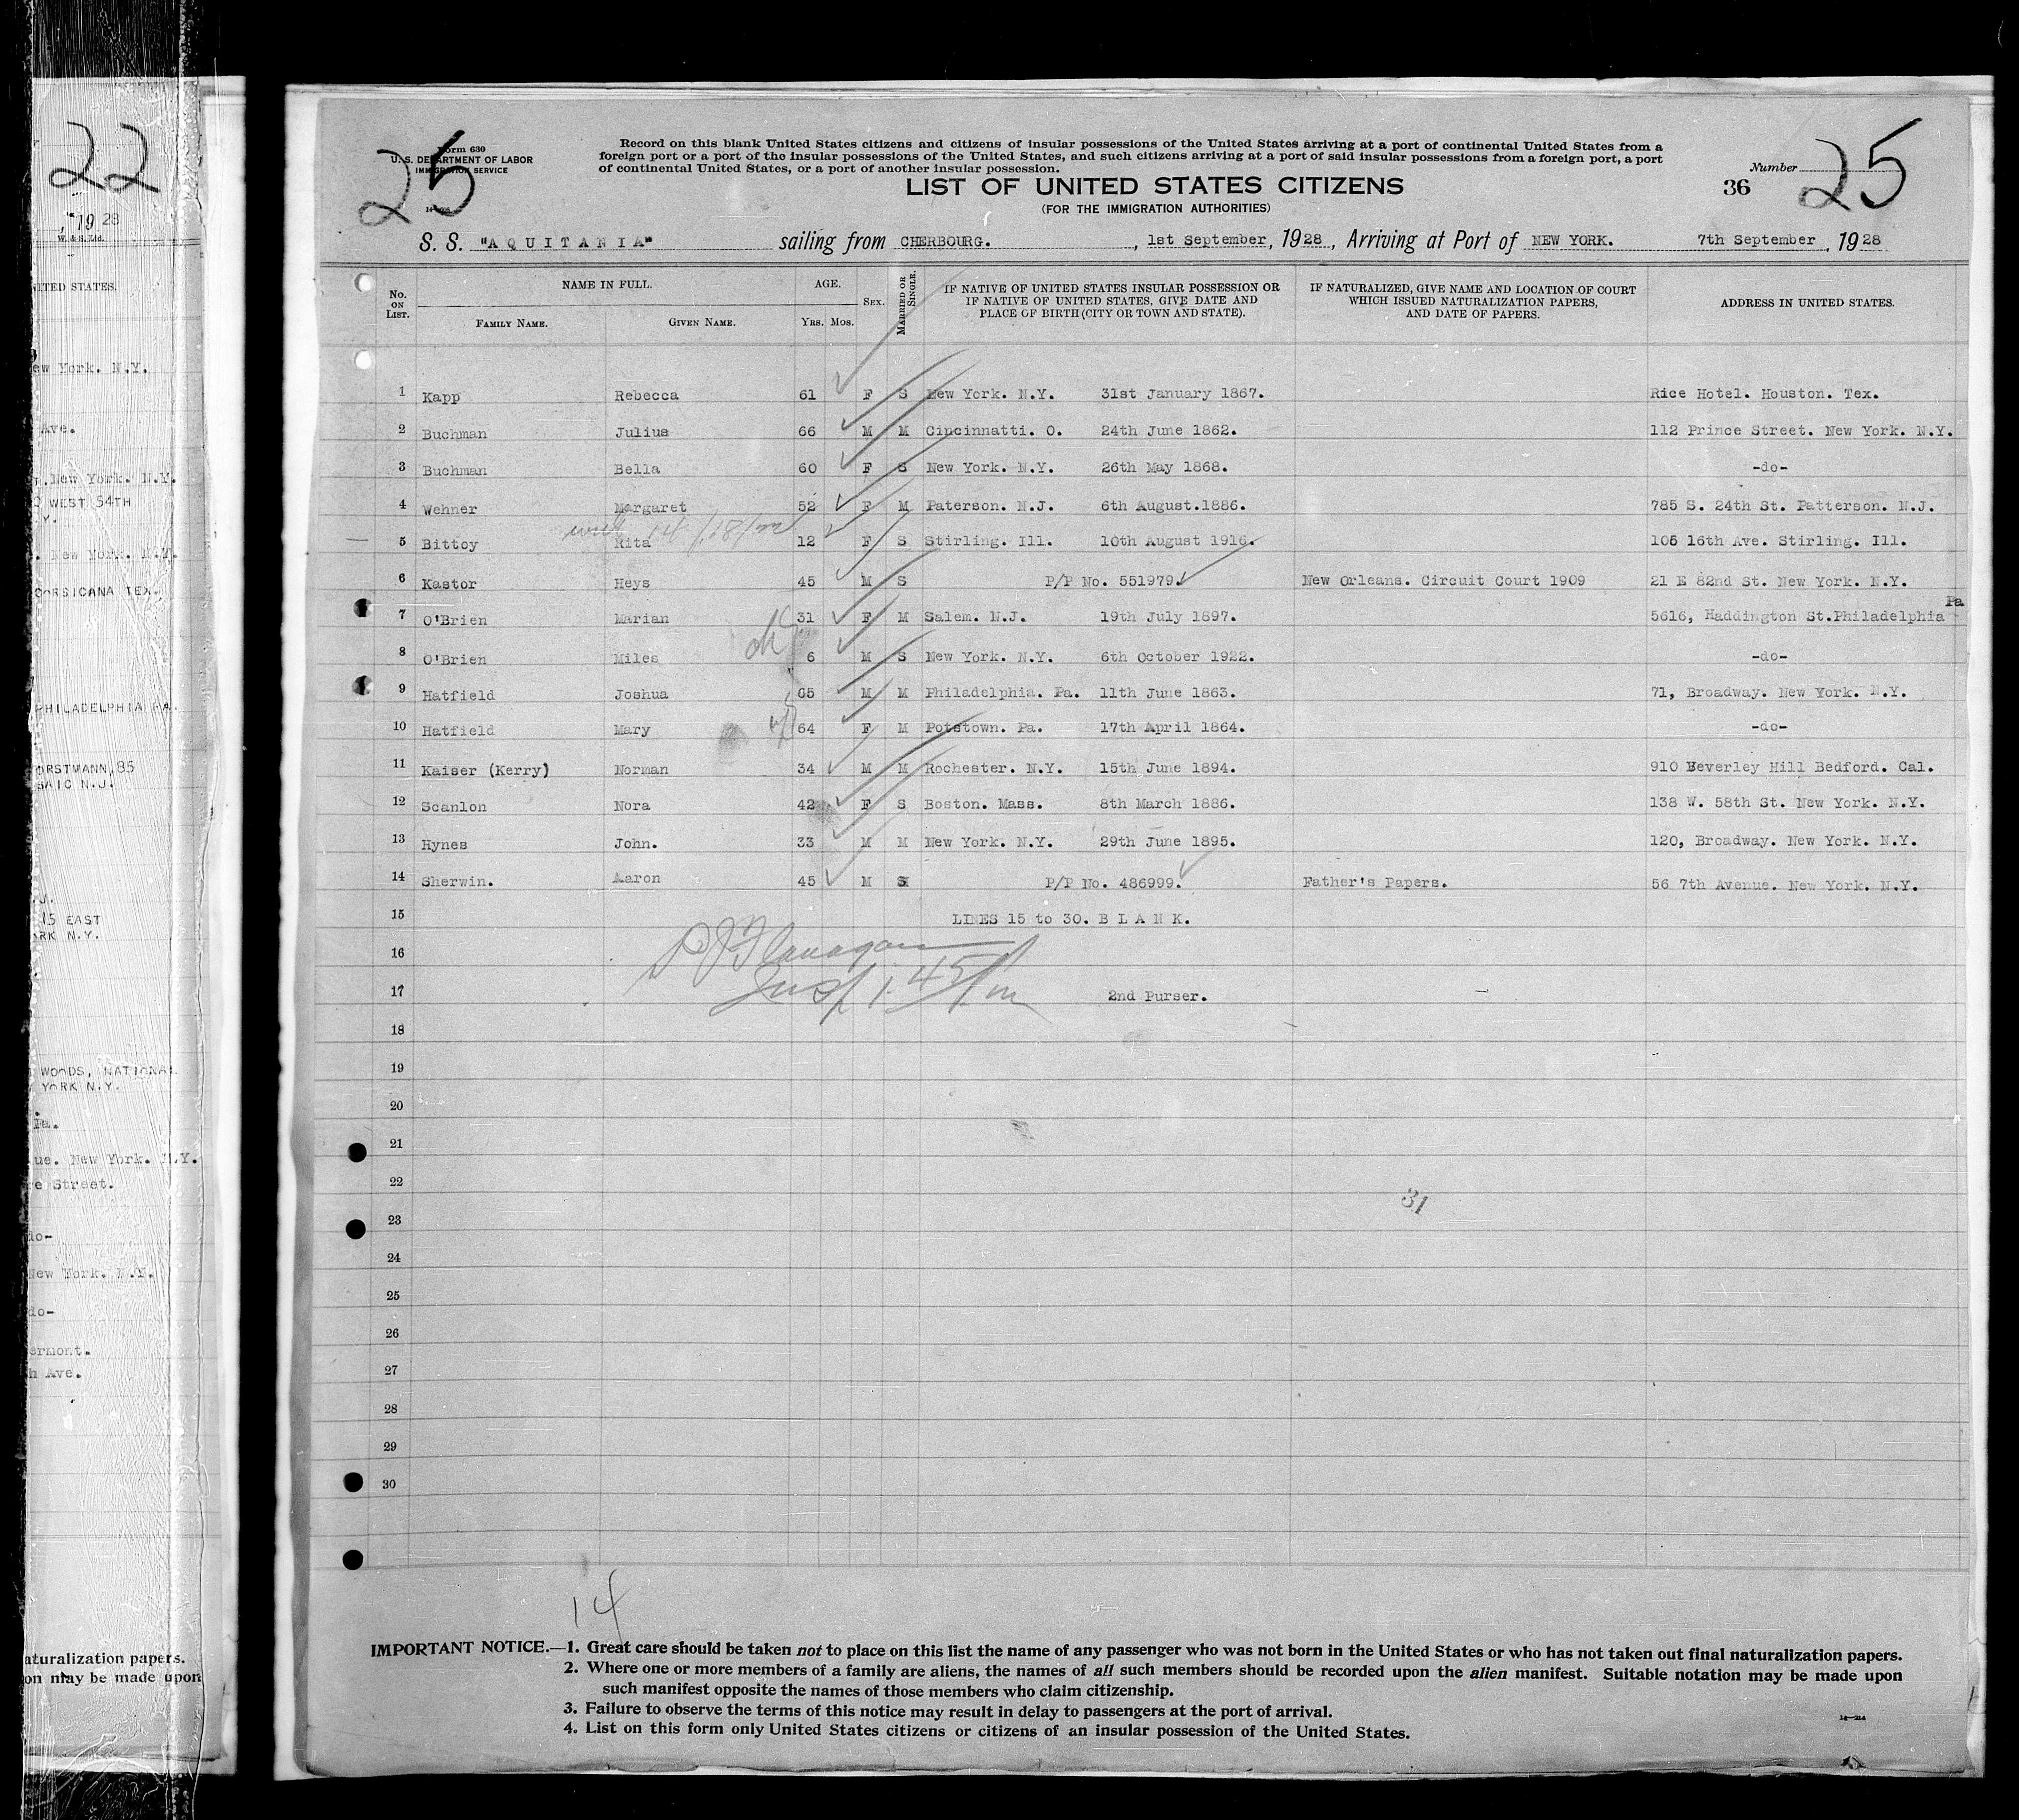 22
, 19 28
W. & S. Ltd.
ITED STATES.
ew York. N.Y.
Ave.
. New York. N.Y.
WEST 54TH
Y.
. New York. N.Y.
CORSICANA TEX.
PHILADELPHIA PA.
ORSTMANN, 85
SAIC N.J.
15 EAST
ORK N.Y.
WOODS, NATIONAL
YORK N.Y.
Pa.
ue. New York. N.Y.
re Street.
do-
New York. N.Y.
do-
ermont.
h Ave.
aturalization papers.
on may be made upon
25
Form 630
U. S. DEPARTMENT OF LABOR
IMMIGRATION SERVICE
Record on this blank United States citizens and citizens of insular possessions of the United States arriving at a port of continental United States from a
foreign port or a port of the insular possessions of the United States, and such citizens arriving at a port of said insular possessions from a foreign port, a port
of continental United States, or a port of another insular possession.
LIST OF UNITED STATES CITIZENS
(FOR THE IMMIGRATION AUTHORITIES)
36 Number 25
S. S. "AQUITANIA" sailing from CHERBOURG. , 1st September, 1928, Arriving at Port of NEW YORK. 7th September, 1928
No. ON LIST. NAME IN FULL. FAMILY NAME. GIVEN NAME. AGE. YRS. MOS. SEX. MARRIED OR SINGLE. IF NATIVE OF UNITED STATES INSULAR POSSESSION OR IF NATIVE OF UNITED STATES, GIVE DATE AND PLACE OF BIRTH (CITY OR TOWN AND STATE). IF NATURALIZED, GIVE NAME AND LOCATION OF COURT WHICH ISSUED NATURALIZATION PAPERS, AND DATE OF PAPERS. ADDRESS IN UNITED STATES.
1 Kapp Rebecca 61 F S New York. N.Y. 31st January 1867. Rice Hotel. Houston. Tex.
2 Buchman Julius 66 M M Cincinnatti. O. 24th June 1862. 112 Prince Street. New York. N.Y.
3 Buchman Bella 60 F S New York. N.Y. 26th May 1868. -do-
4 Wehner Margaret 52 F M Paterson. N.J. 6th August.1886. 785 S. 24th St. Patterson. N.J.
5 Bittoy Rita 12 F S Stirling. Ill. 10th August 1916. 105 16th Ave. Stirling. Ill.
6 Kastor Heys 45 M S P/P No. 551979. New Orleans. Circuit Court 1909 21 E 82nd St. New York. N.Y.
7 O'Brien Marian 31 F M Salem. N.J. 19th July 1897. 5616, Haddington St.Philadelphia Pa
8 O'Brien Miles ok 6 M S New York. N.Y. 6th October 1922. -do-
9 Hatfield Joshua 65 M M Philadelphia. Pa. 11th June 1863. 71, Broadway. New York. N.Y.
10 Hatfield Mary 64 F M Potstown. Pa. 17th April 1864. -do-
11 Kaiser (Kerry) Norman 34 M M Rochester. N.Y. 15th June 1894. 910 Beverley Hill Bedford. Cal.
12 Scanlon Nora 42 F S Boston. Mass. 8th March 1886. 138 W. 58th St. New York. N.Y.
13 Hynes John. 33 M M New York. N.Y. 29th June 1895. 120, Broadway. New York. N.Y.
14 Sherwin. Aaron 45 M S P/P No. 486999. Father's Papers. 56 7th Avenue. New York. N.Y.
15 LINES 15 to 30. B L A N K.
16 Flanagan
17 Insp 1.45 Pm 2nd Purser.
18
19
20
21
22
31
23
24
25
26
27
28
29
30
14
IMPORTANT NOTICE.—1. Great care should be taken not to place on this list the name of any passenger who was not born in the United States or who has not taken out final naturalization papers.
2. Where one or more members of a family are aliens, the names of all such members should be recorded upon the alien manifest. Suitable notation may be made upon
such manifest opposite the names of those members who claim citizenship.
3. Failure to observe the terms of this notice may result in delay to passengers at the port of arrival.
4. List on this form only United States citizens or citizens of an insular possession of the United States.
14—214